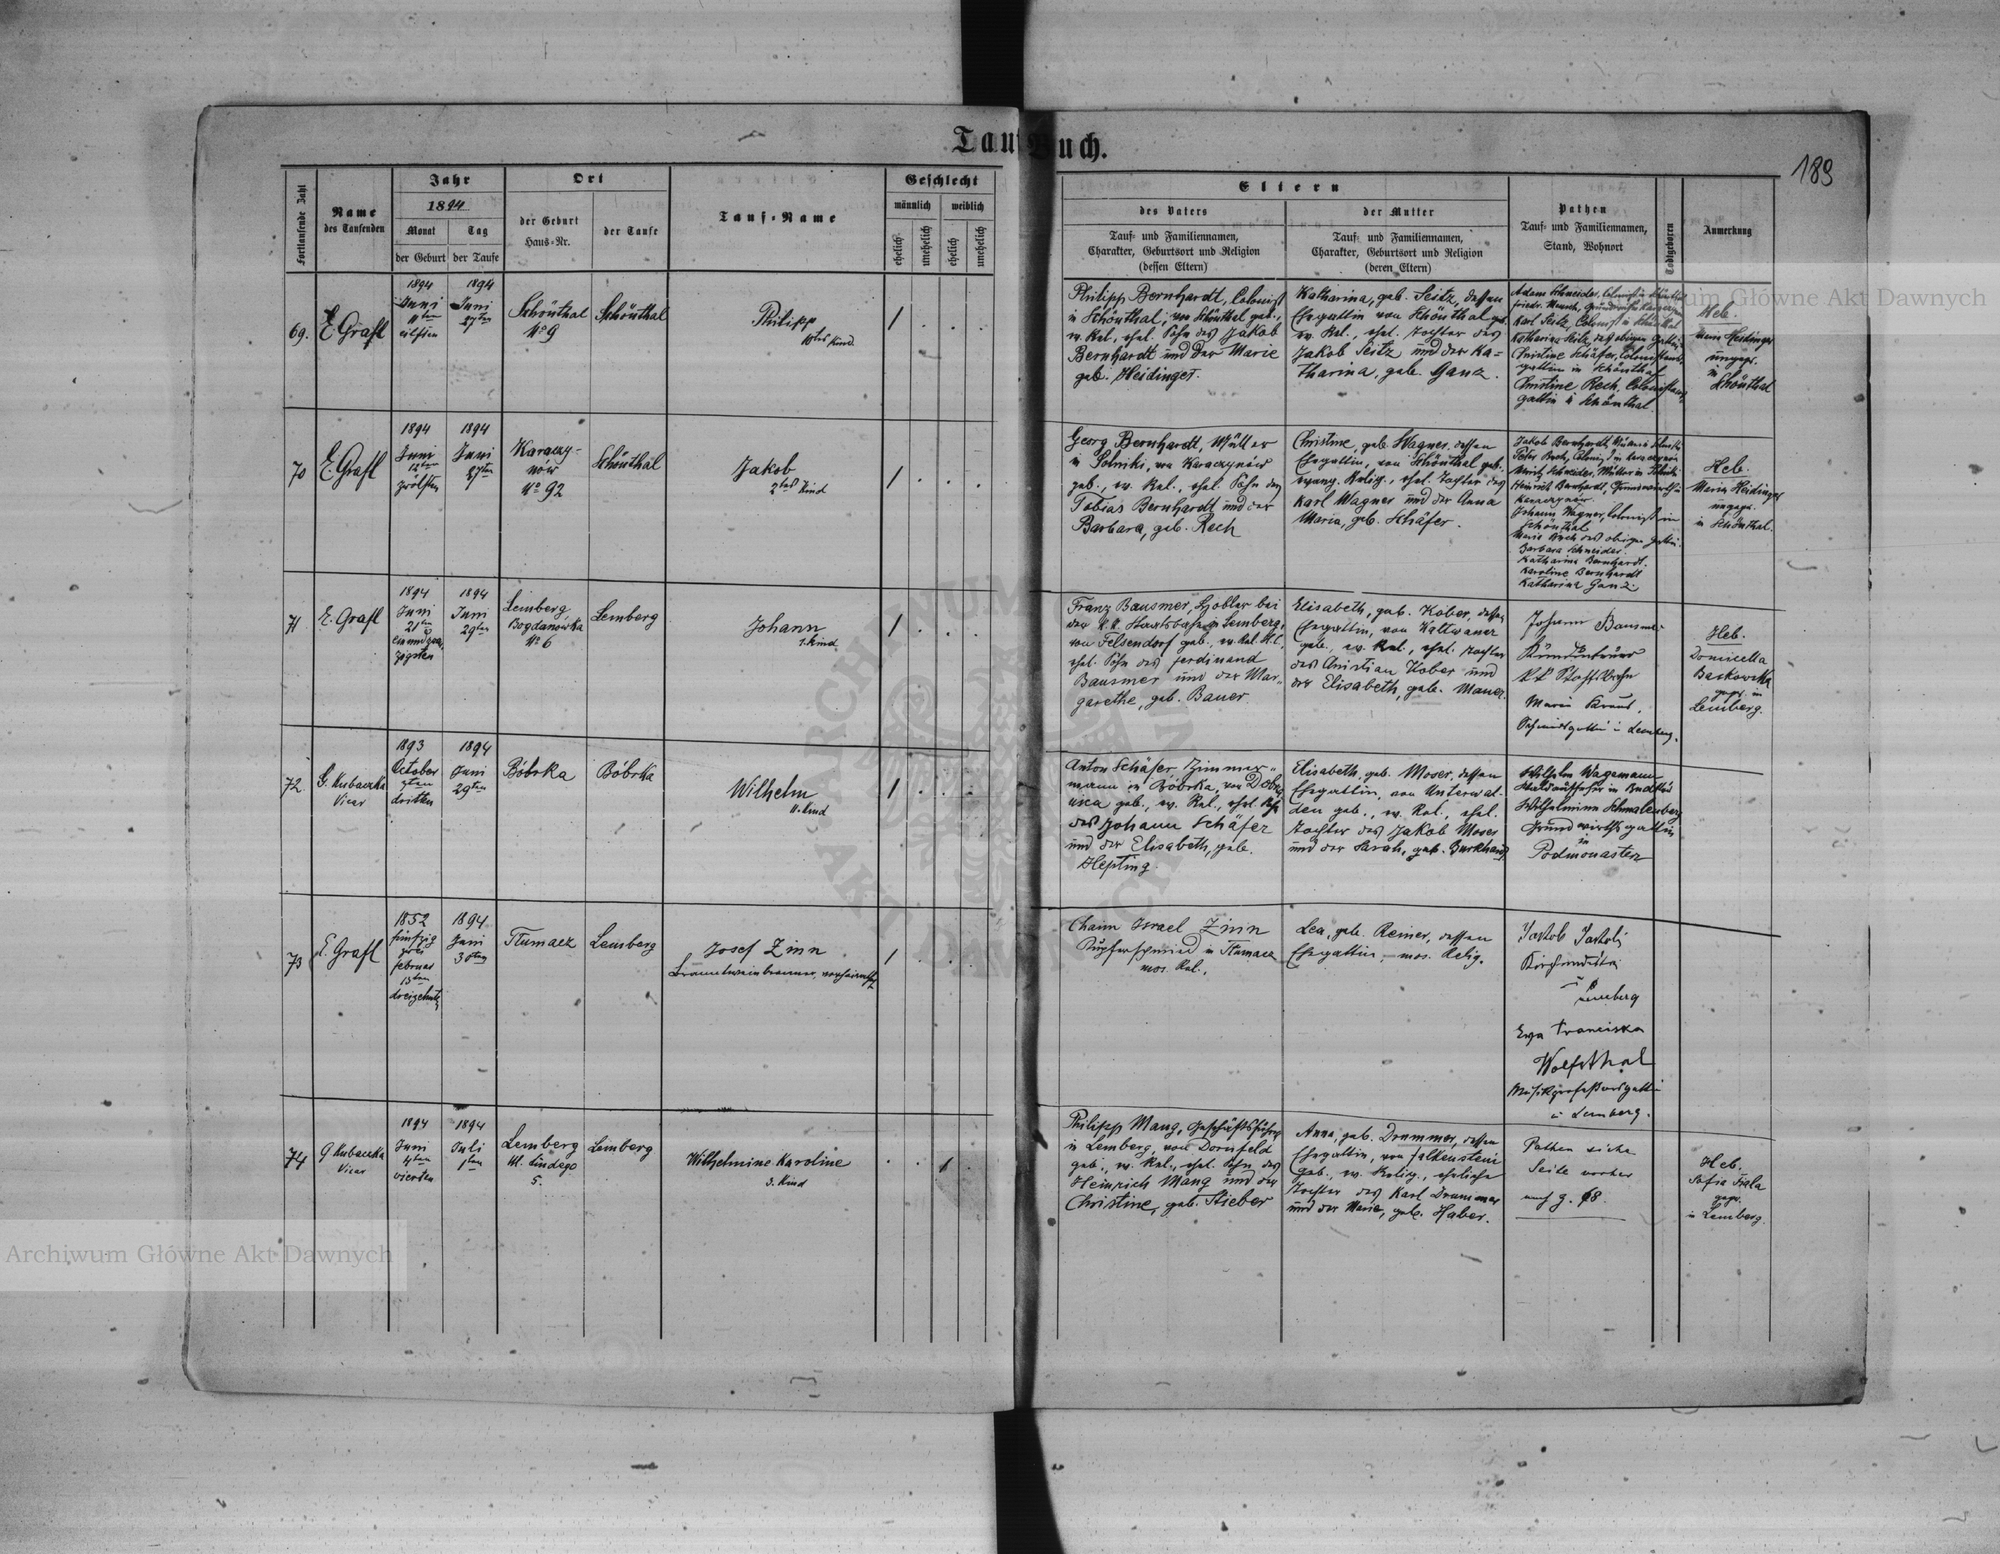 Tauf Buch.
189
Fortlaufende Zahl
Name
des Taufenden
Jahr
1894
Monat
Tag
der Geburt
der Taufe
Ort
der Geburt
Haus-Nr.
der Taufe
Tauf-Name
Geschlecht
männlich
weiblich
ehelich
unehelich
ehelich
unehelich
Eltern
des Vaters
Tauf- und Familiennamen,
Charakter, Geburtsort und Religion
(dessen Eltern)
der Mutter
Tauf- und Familiennamen,
Charakter, Geburtsort und Religion
(deren Eltern)
Pathen
Tauf- und Familiennamen,
Stand, Wohnort
Todtgeboren
Anmerkung
69.
E. Grafl
1894
Juni
11ten
eilften
1894
Juni
27ten
Schönthal
No 9
Schönthal
Philipp
10tes Kind.
Philipp Bernhardt, Colonist
in Schönthal, von Schönthal geb.,
ev. Rel., ehel. Sohn des Jakob
Bernhardt und der Marie
geb. Heidinger.
Katharina, geb. Seitz, dessen
Ehegattin von Schönthal geb.
ev. Rel. ehel. Tochter des
Jakob Seitz und der Ka-
tharina, geb. Ganz.
Adam Schneider, Colonist in Schönthal
Karl Seitz, Colonist in Schönthal
Katharina Seitz, des obigen Gattin
Christine Schäfer, Colonistens-
gattin in Schönthal
Christine Rech, Colonistens
gattin in Schönthal.
Heb.
Heidinger
ungepr.
in
Schönthal
70
E. Grafl
1894
Juni
12ten
zwölften
1894
Juni
27ten
Karaczy-
nów
No 92
Schönthal
Jakob
2tes Kind
Georg Bernhardt, Müller
in Solniki, von Karaczynów
geb., ev. Rel., ehel. Sohn des
Tobias Bernhardt und der
Barbara, geb. Rech
Christine, geb. Wagner, dessen
Ehegattin, von Schönthal geb.,
evang. Relig., ehel. Tochter des
Karl Wagner und der Anna
Maria, geb. Schäfer.
Jakob Bernhardt, Müller in
Peter Rech, Colonist in Karaczynów
Schneider, Müller in
Heinrich Bernhardt, Grundwirth in
Karaczynów
Johann Wagner, Colonist in
Schönthal
Marie Rech des obigen Gattin.
Barbara Schneider.
Katharina Bernhardt.
Karoline Bernhardt
Katharina Ganz.
Heb.
Maria Heidinger
ungepr.
in Schönthal.
71
E. Grafl
1894
Juni
21ten
einundzwan-
zigsten
1894
Juni
29ten
Lemberg
Bogdanówka
No 6
Lemberg
Johann
1. Kind.
Franz Bausmer, Hobler bei
der k.k. Staatsbahn in Lemberg,
von Felsendorf geb., ev. Rel. H.C.
ehel. Sohn des Ferdinand
Bausmer und der Mar-
garethe, geb. Bauer.
Elisabeth, geb. Kober, dessen
Ehegattin, von Kaltwasser
geb., ev. Rel., ehel. Tochter
des Christian Kober und
der Elisabeth, geb. Mauer.
Johann Bausmer
Maria
in Lemberg.
Heb.
Domicella
Backowska
gepr. in
Lemberg.
72.
G. Kubaczka
Vicar
1893
October
3ten
dritten
1894
Juni
29ten
Bóbrka
Bóbrka
Wilhelm
11. Kind
Anton Schäfer Zimmer-
mann in Bóbrka, von
geb., ev. Rel., ehel. Sohn
des Johann Schäfer
und der Elisabeth, geb.
Hepting.
Elisabeth, geb. Moser, dessen
Ehegattin, von Unterwal-
den geb., ev. Rel., ehel.
Tochter des Jakob Moser
und der Sarah, geb. Burkhardt
Wilhelm Wagemann
Waldaufseher in
Wilhelmine Schmalenberg
Grundwirthsgattin
in
Podmonasterz
73
E. Grafl
1852
fünfzig
zwei
Februar
13ten
dreizehnten
1894
Juni
30ten
Tlumacz
Lemberg
Josef Zinn
Branntweinbrenner,
Chaim Israel Zinn
Kupferschmied in Tlumacz
mos. Rel.
Lea, geb. Reiner, dessen
Ehegattin, mos. Relig.
Jakob
in
Lemberg
Eva Franciska
Wolfsthal
Musikprofessorsgattin
in Lemberg.
74
G Kubaczka
Vicar
1894
Juni
4ten
vierten
1894
Juli
1ten
Lemberg
Ul. Lindego
5.
Lemberg
Wilhelmine Karoline
3. Kind
Philipp Mang, Geschäftsführer
in Lemberg, von Dornfeld
geb., ev. Rel., ehel. Sohn des
Heinrich Mang und der
Christine, geb. Stieber
Anna, geb. Drummer, dessen
Ehegattin, von Falkenstein
geb., ev. Relig., eheliche
Tochter des Karl Drummer
und der Marie, geb. Haber.
Pathen siehe
Seite vorher
68.
Heb.
Sofia
gepr.
in Lemberg.
Archiwum Główne Akt Dawnych
Archiwum Główne Akt Dawnych